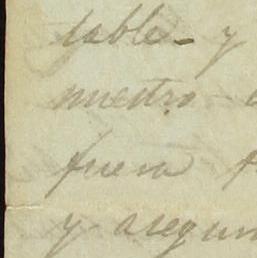 table - y
nuestro -
fuera
y asegun